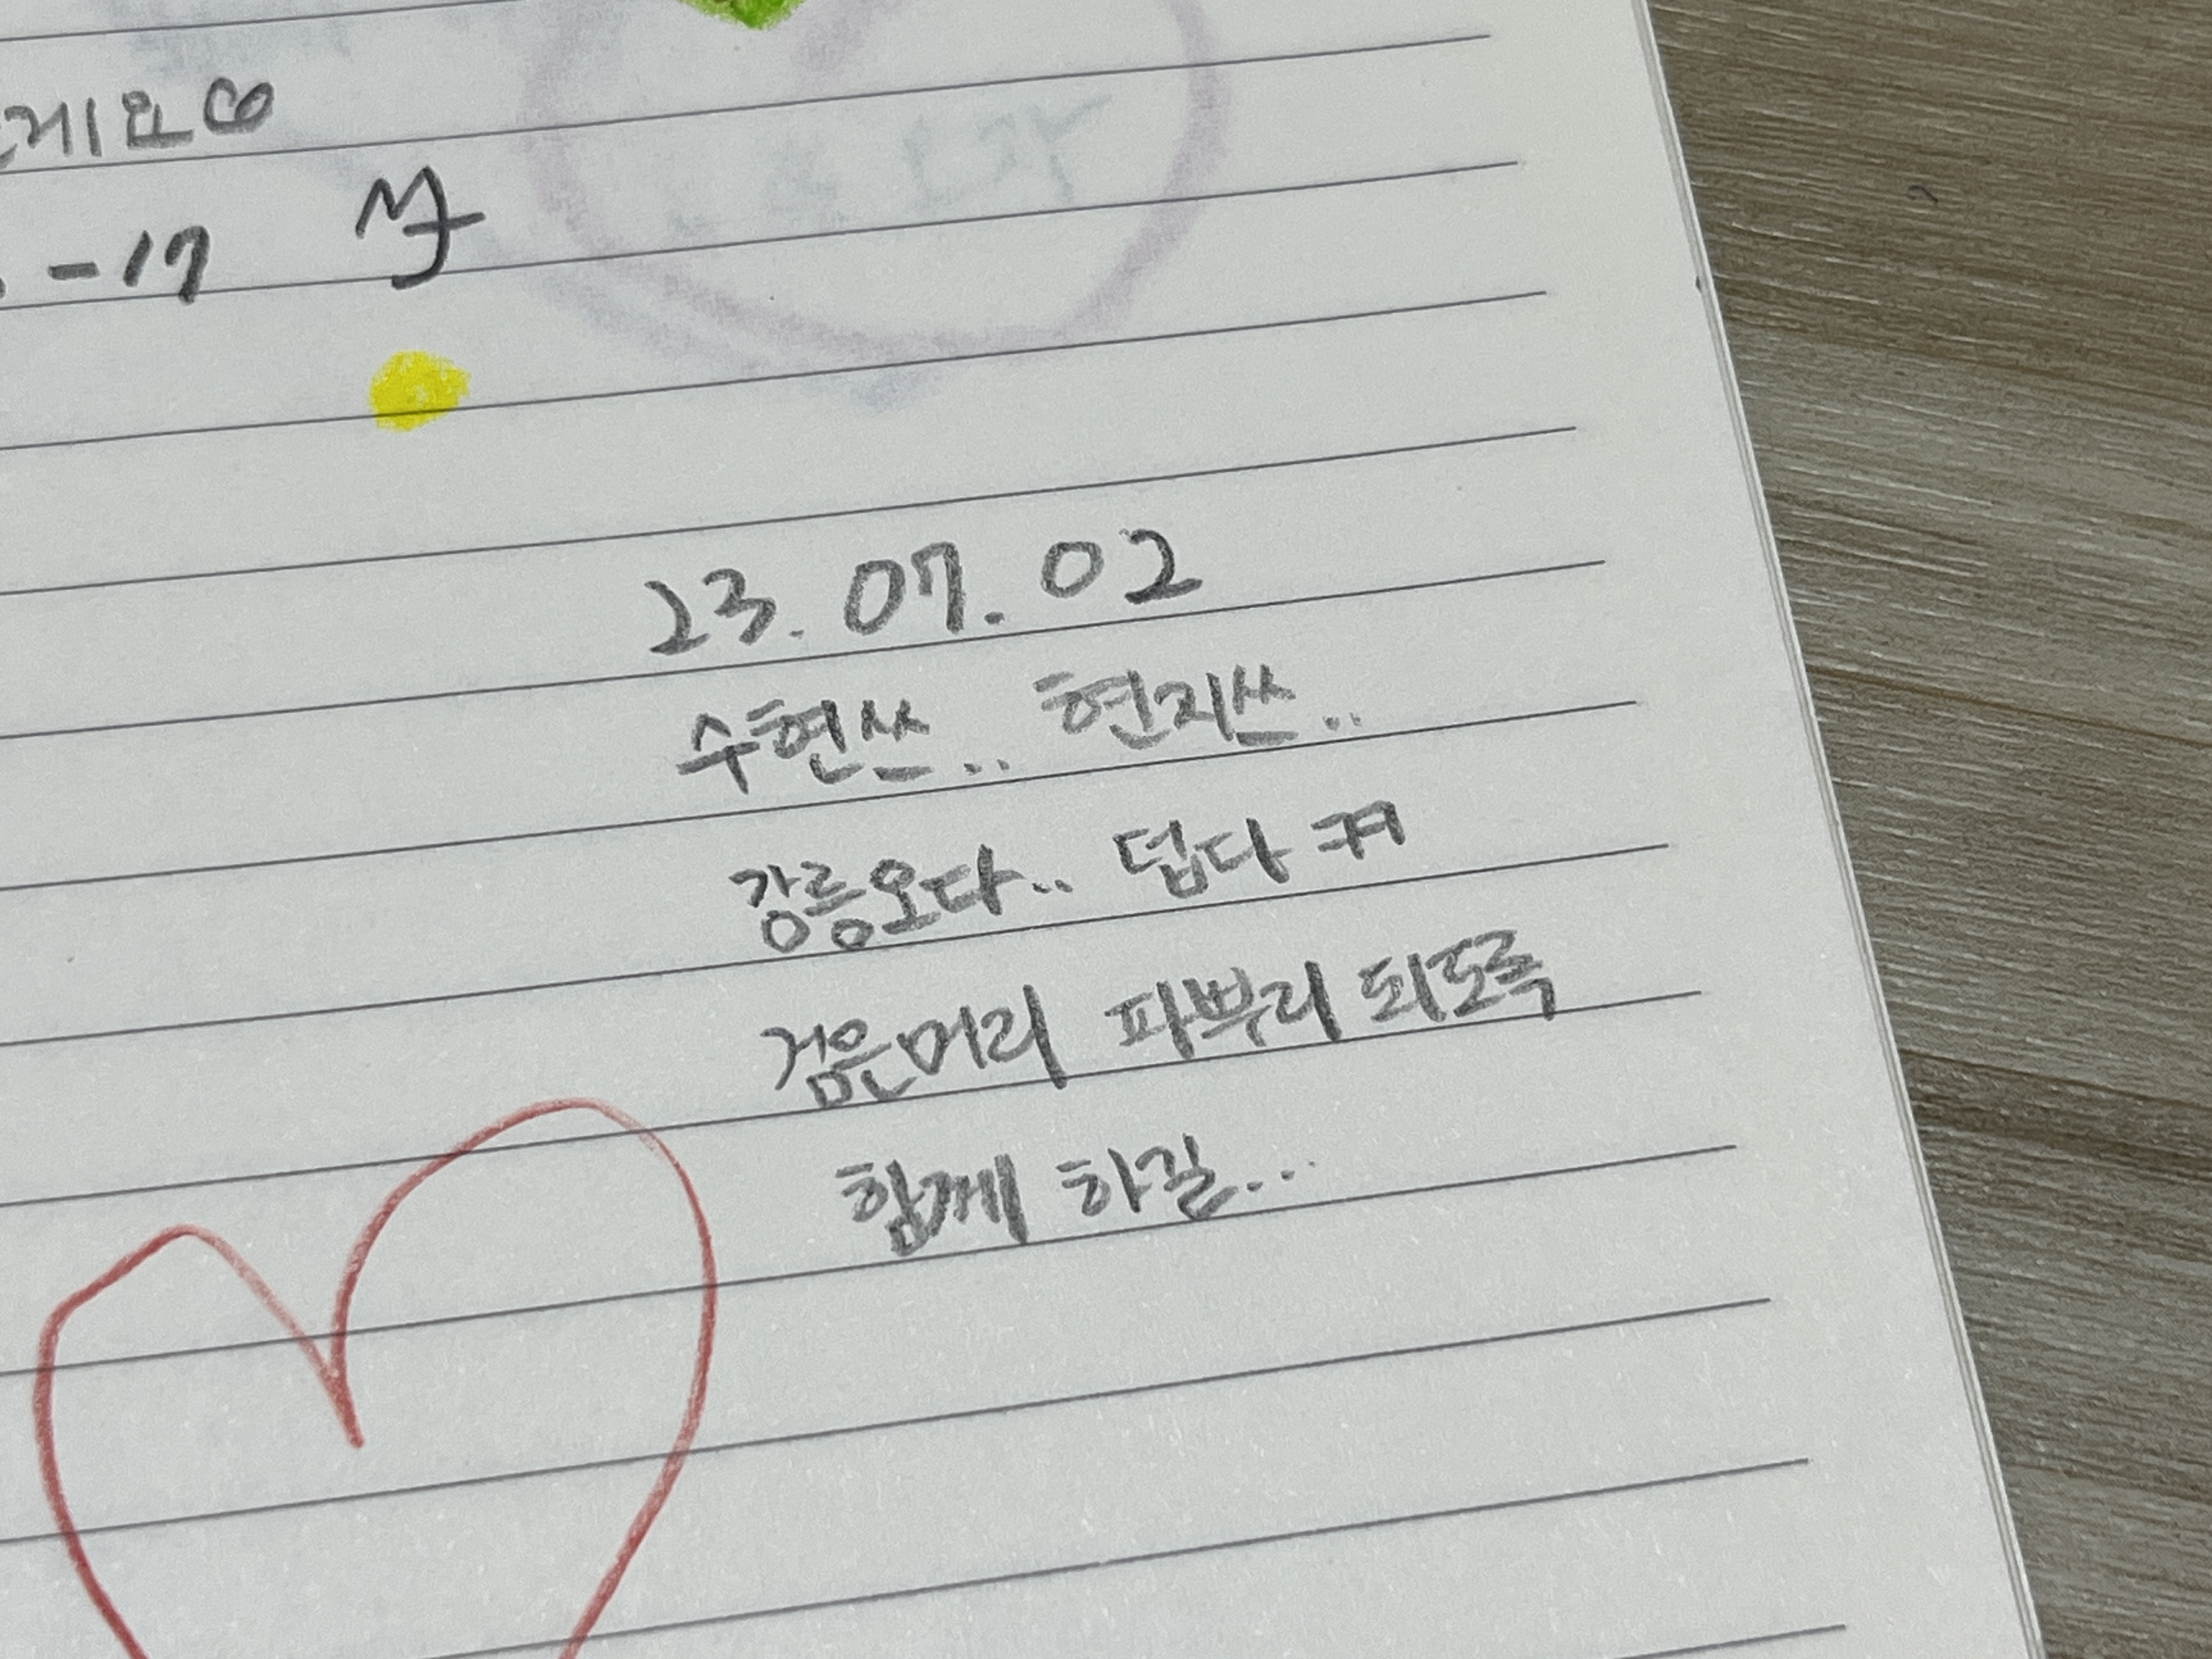 게요
-17
23.07.02
수현쓰.. 현지쓰..
강릉오다.. 덥다 ㅋㅋ
검은머리 파뿌리 되도록
함께 하길...